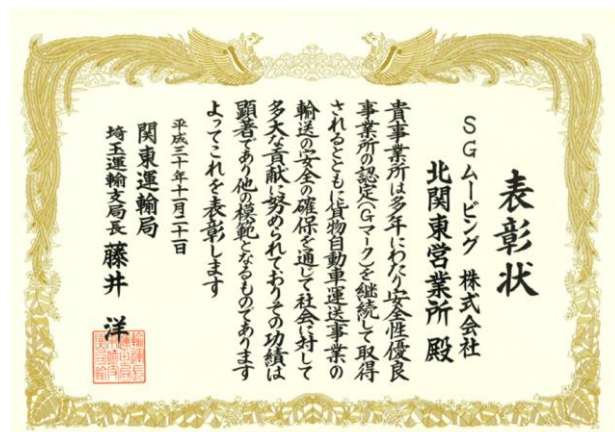 表彰状
SGムービング 株式会社
北関東営業所 殿
貴事業所は多年にわたり安全性優良
事業所の認定(Gマーク)を継続して取得
されるとともに貨物自動車運送事業の
輸送の安全の確保を通じて社会に対して
多大な貢献に努められておりその功績は
顕著であり他の模範となるものであります
よってこれを表彰します
平成三十年十一月二十一日
関東運輸局
埼玉運輸支局長 藤井 洋